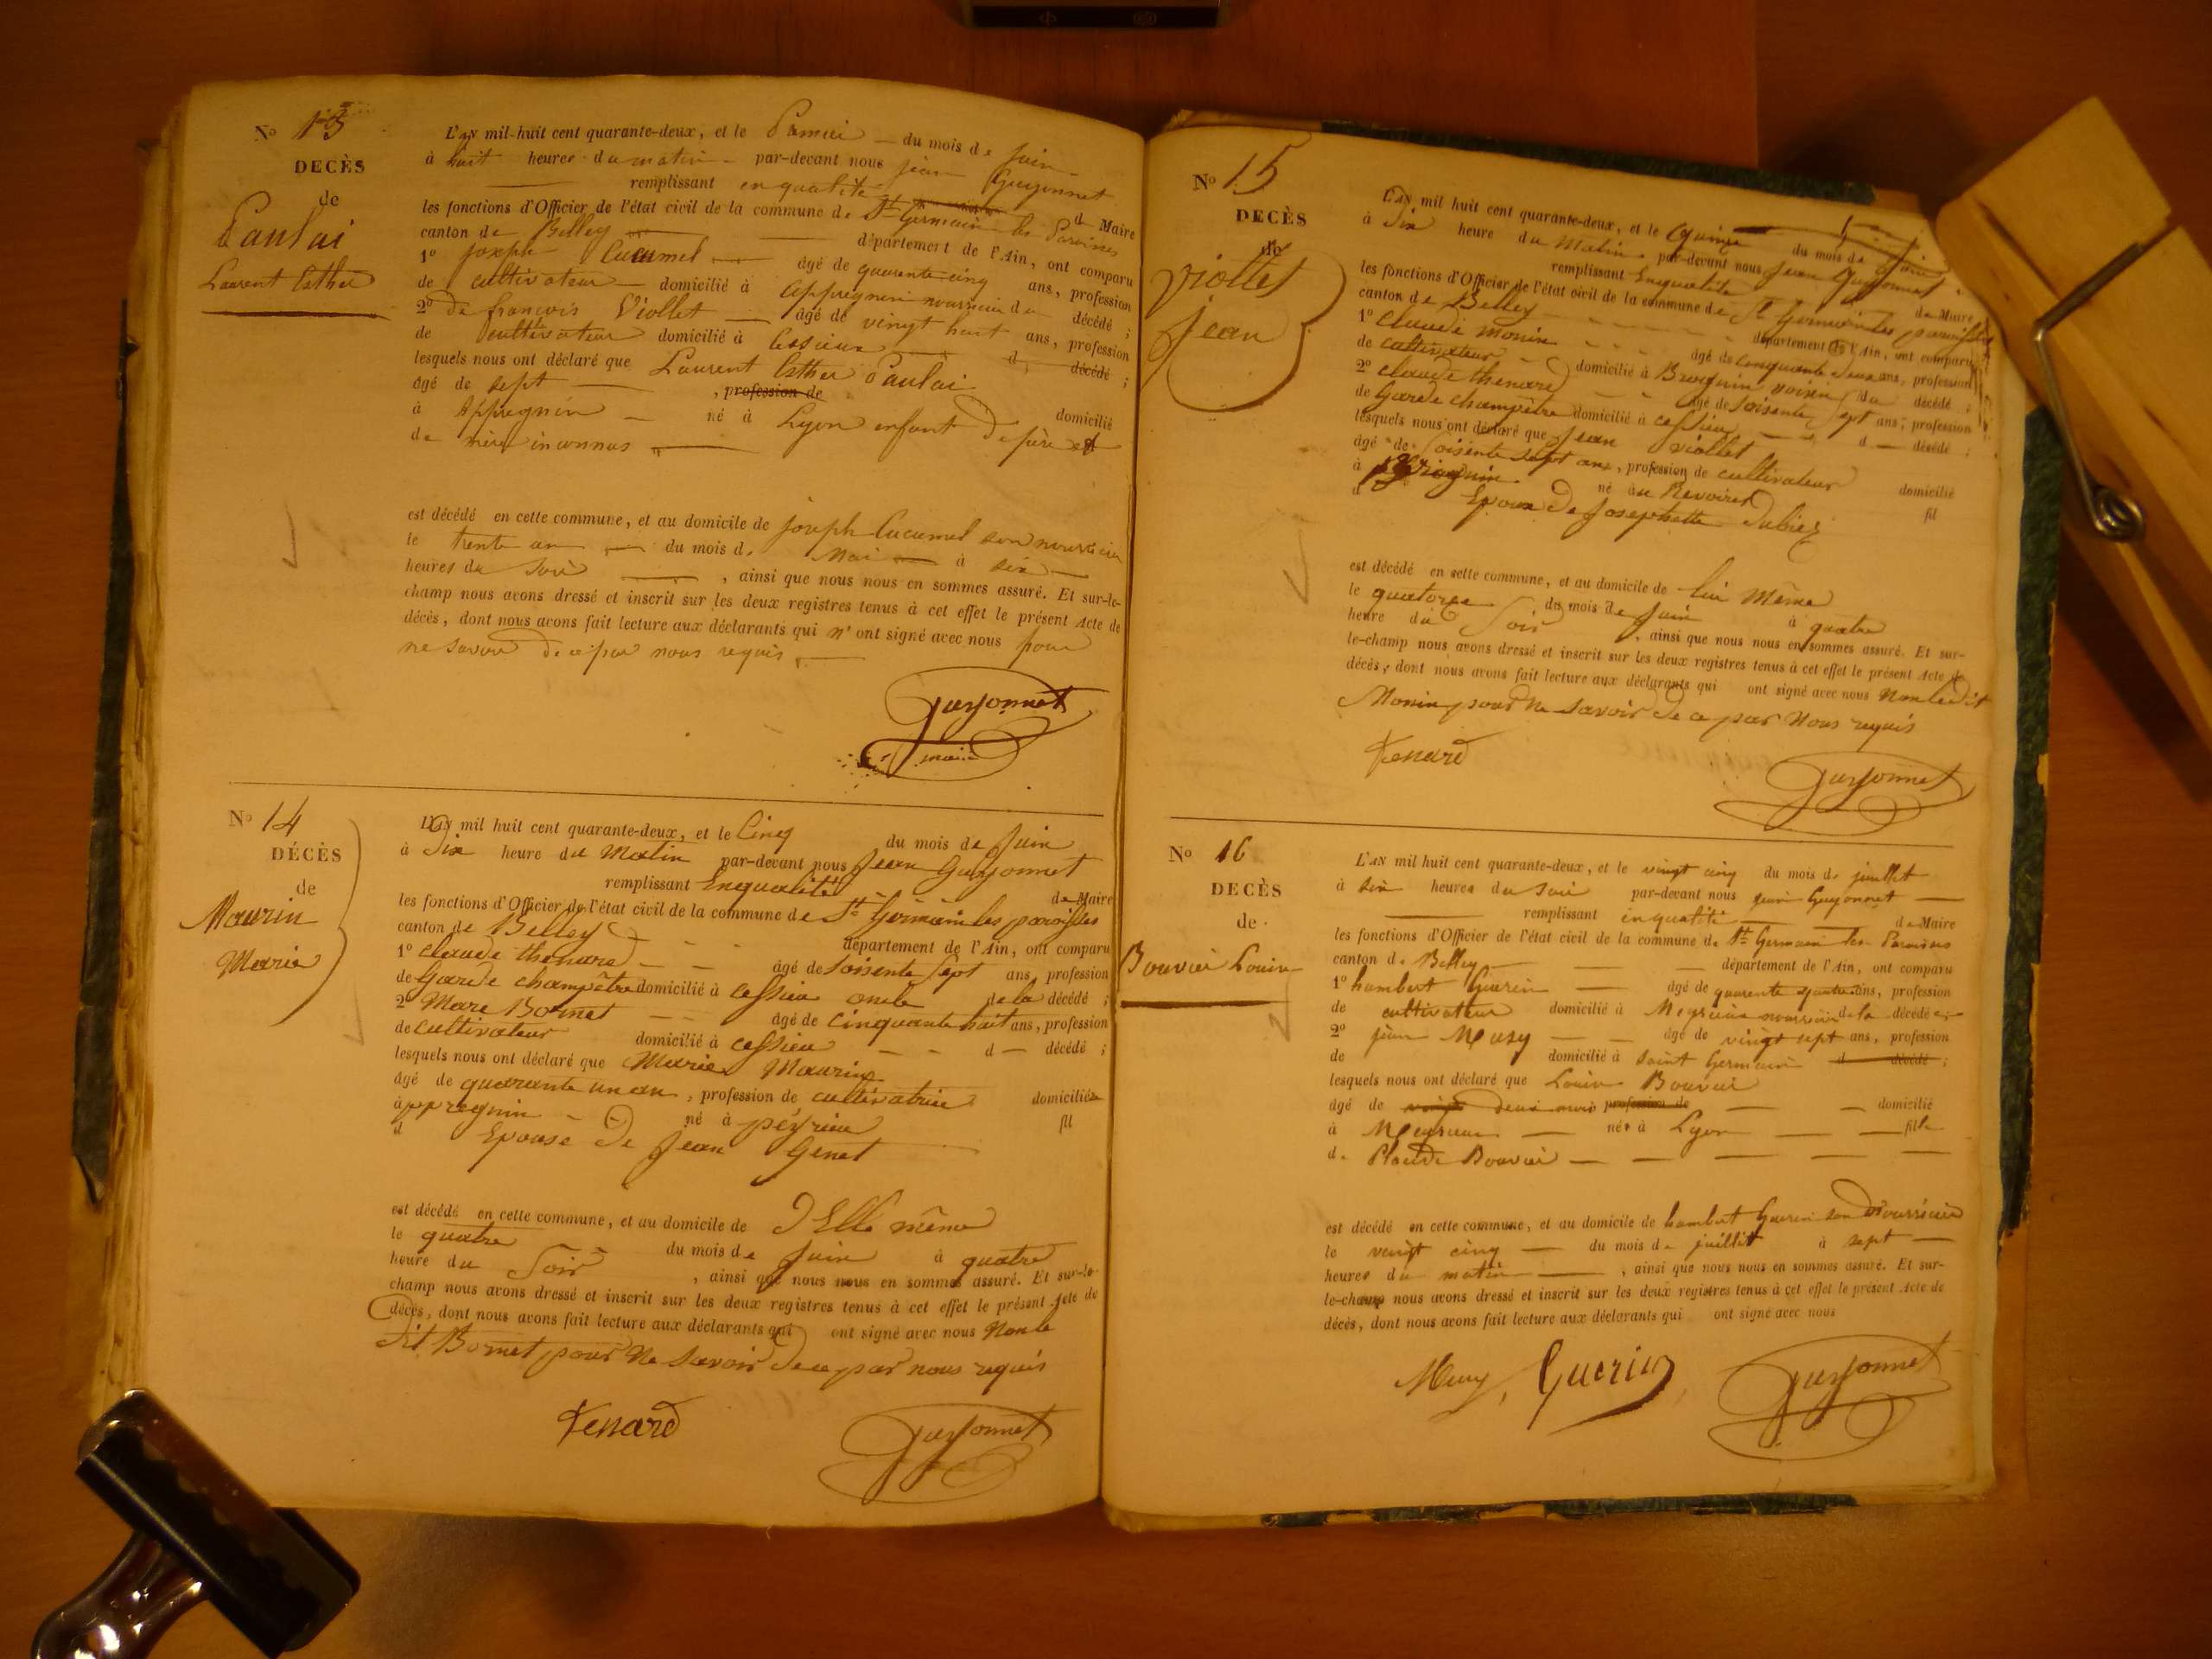 N° 13
DECÈS
de
Paulai
Laurent Esther
L'AN mil-huit cent quarante-deux, et le Premier du mois de Juin
à huit heures du matin par-devant nous jean Guyonnet
remplissant en qualité d Maire
les fonctions d'Officier de l'état civil de la commune de St Germain les Paroisses
canton de Belley département de l'Ain, ont comparu
1° joseph Cucumel âgé de quarente cinq ans, profession
de cultivateur domicilié à Appregnin nourricier du décédé ;
2° de françois Viollet âgé de vingt huit ans, profession
de cultivateur domicilié à Cessieux d décédé ;
lesquels nous ont déclaré que Laurent Esther Paulai
âgé de sept , profession de domicilié
à Appregnin né à Lyon enfant de père et
de mère inconnus
est décédé en cette commune, et au domicile de joseph Cucumel son nourricier
le trente un du mois de Mai à six
heures du soir , ainsi que nous nous en sommes assuré. Et sur-le-
champ nous avons dressé et inscrit sur les deux registres tenus à cet effet le présent Acte de
décès, dont nous avons fait lecture aux déclarants qui n'ont signé avec nous pour
ne savoir de ce par nous requis
Guyonnet
maire
N° 14
DÉCÈS
de
Maurin
Marie
L'AN mil huit cent quarante-deux, et le Cinq du mois de Juin
à Six heure du Matin par-devant nous Jean Guyonnet
remplissant Enqualité de Maire
les fonctions d'Officier de l'état civil de la commune de St Germain les paroisses
canton de Belley département de l'Ain, ont comparu
1° claude thenard âgé de soisente sept ans, profession
de Garde champêtre domicilié à cessieu oncle de la décédé ;
2° Marc Bornet âgé de cinquante huit ans, profession
de cultivateur domicilié à cessieu d décédé ;
lesquels nous ont déclaré que Marie Maurin
âgé de quarante un an , profession de cultivatrice domiciliée
à ppregnin né à peyrieu fil
d Epouse De Jean Genet
est décédé en cette commune, et au domicile de D'Elle même
le quatre du mois de Juin à quatre
heure du Soir , ainsi que nous nous en sommes assuré. Et sur-le-
champ nous avons dressé et inscrit sur les deux registres tenus à cet effet le présent Acte de
décès, dont nous avons fait lecture aux déclarants qui ont signé avec nous Non le
Dit Bornet pour Ne savoir De ce par nous requis
Tenard
Guyonnet
N° 15
DECÈS
de
viollet
jean
L'AN mil huit cent quarante-deux, et le Quinze du mois de Juin
à Six heure du Matin par-devant nous Jean Guyonnet
remplissant Enqualité de Maire
les fonctions d'Officier de l'état civil de la commune de St Germain les paroisses
canton de Belley département de l'Ain, ont comparu
1° claude monin âgé de cinquante deux ans, profession
de cultivateur domicilié à Brognin voisin du décédé ;
2° claude thenard âgé de soisente sept ans, profession
de Garde champêtre domicilié à cessieu d décédé ;
lesquels nous ont déclaré que Jean viollet
âgé de soisente sept ans, profession de cultivateur domicilié
à Brognin né au Revoiret fil
d Epoux De Josephette Dubiez
est décédé en cette commune, et au domicile de lui Même
le quatorze du mois de Juin à quatre
heure du Soir , ainsi que nous nous en sommes assuré. Et sur-
le-champ nous avons dressé et inscrit sur les deux registres tenus à cet effet le présent Acte de
décès, dont nous avons fait lecture aux déclarants qui ont signé avec nous Non ledit
Monin pour Ne savoir De ce par Nous requis
Tenard
Guyonnet
N° 16
DECÈS
de
Bouvier Louise
L'AN mil huit cent quarante-deux, et le vingt cinq du mois de juillet
à six heures du soir par-devant nous jean Guyonnet
remplissant en qualité de Maire
les fonctions d'Officier de l'état civil de la commune de St Germain les Paroisses
canton de Belley département de l'Ain, ont comparu
1° humbert Guerin âgé de quarente quatre ans, profession
de cultivateur domicilié à Meyrieux nourricier de la décédée
2° jean Musy âgé de vingt sept ans, profession
de domicilié à saint Germain d décédé ;
lesquels nous ont déclaré que Louise Bouvier
âgé de vingt deux mois profession de domicilié
à Meyrieux née à Lyon fille
de Claude Bouvier
est décédé en cette commune, et au domicile de humbert Guerin son nourricier
le vingt cinq du mois de juillet à sept
heures du matin , ainsi que nous nous en sommes assuré. Et sur-
le-champ nous avons dressé et inscrit sur les deux registres tenus à cet effet le présent Acte de
décès, dont nous avons fait lecture aux déclarants qui ont signé avec nous
Musy, Guerin
Guyonnet